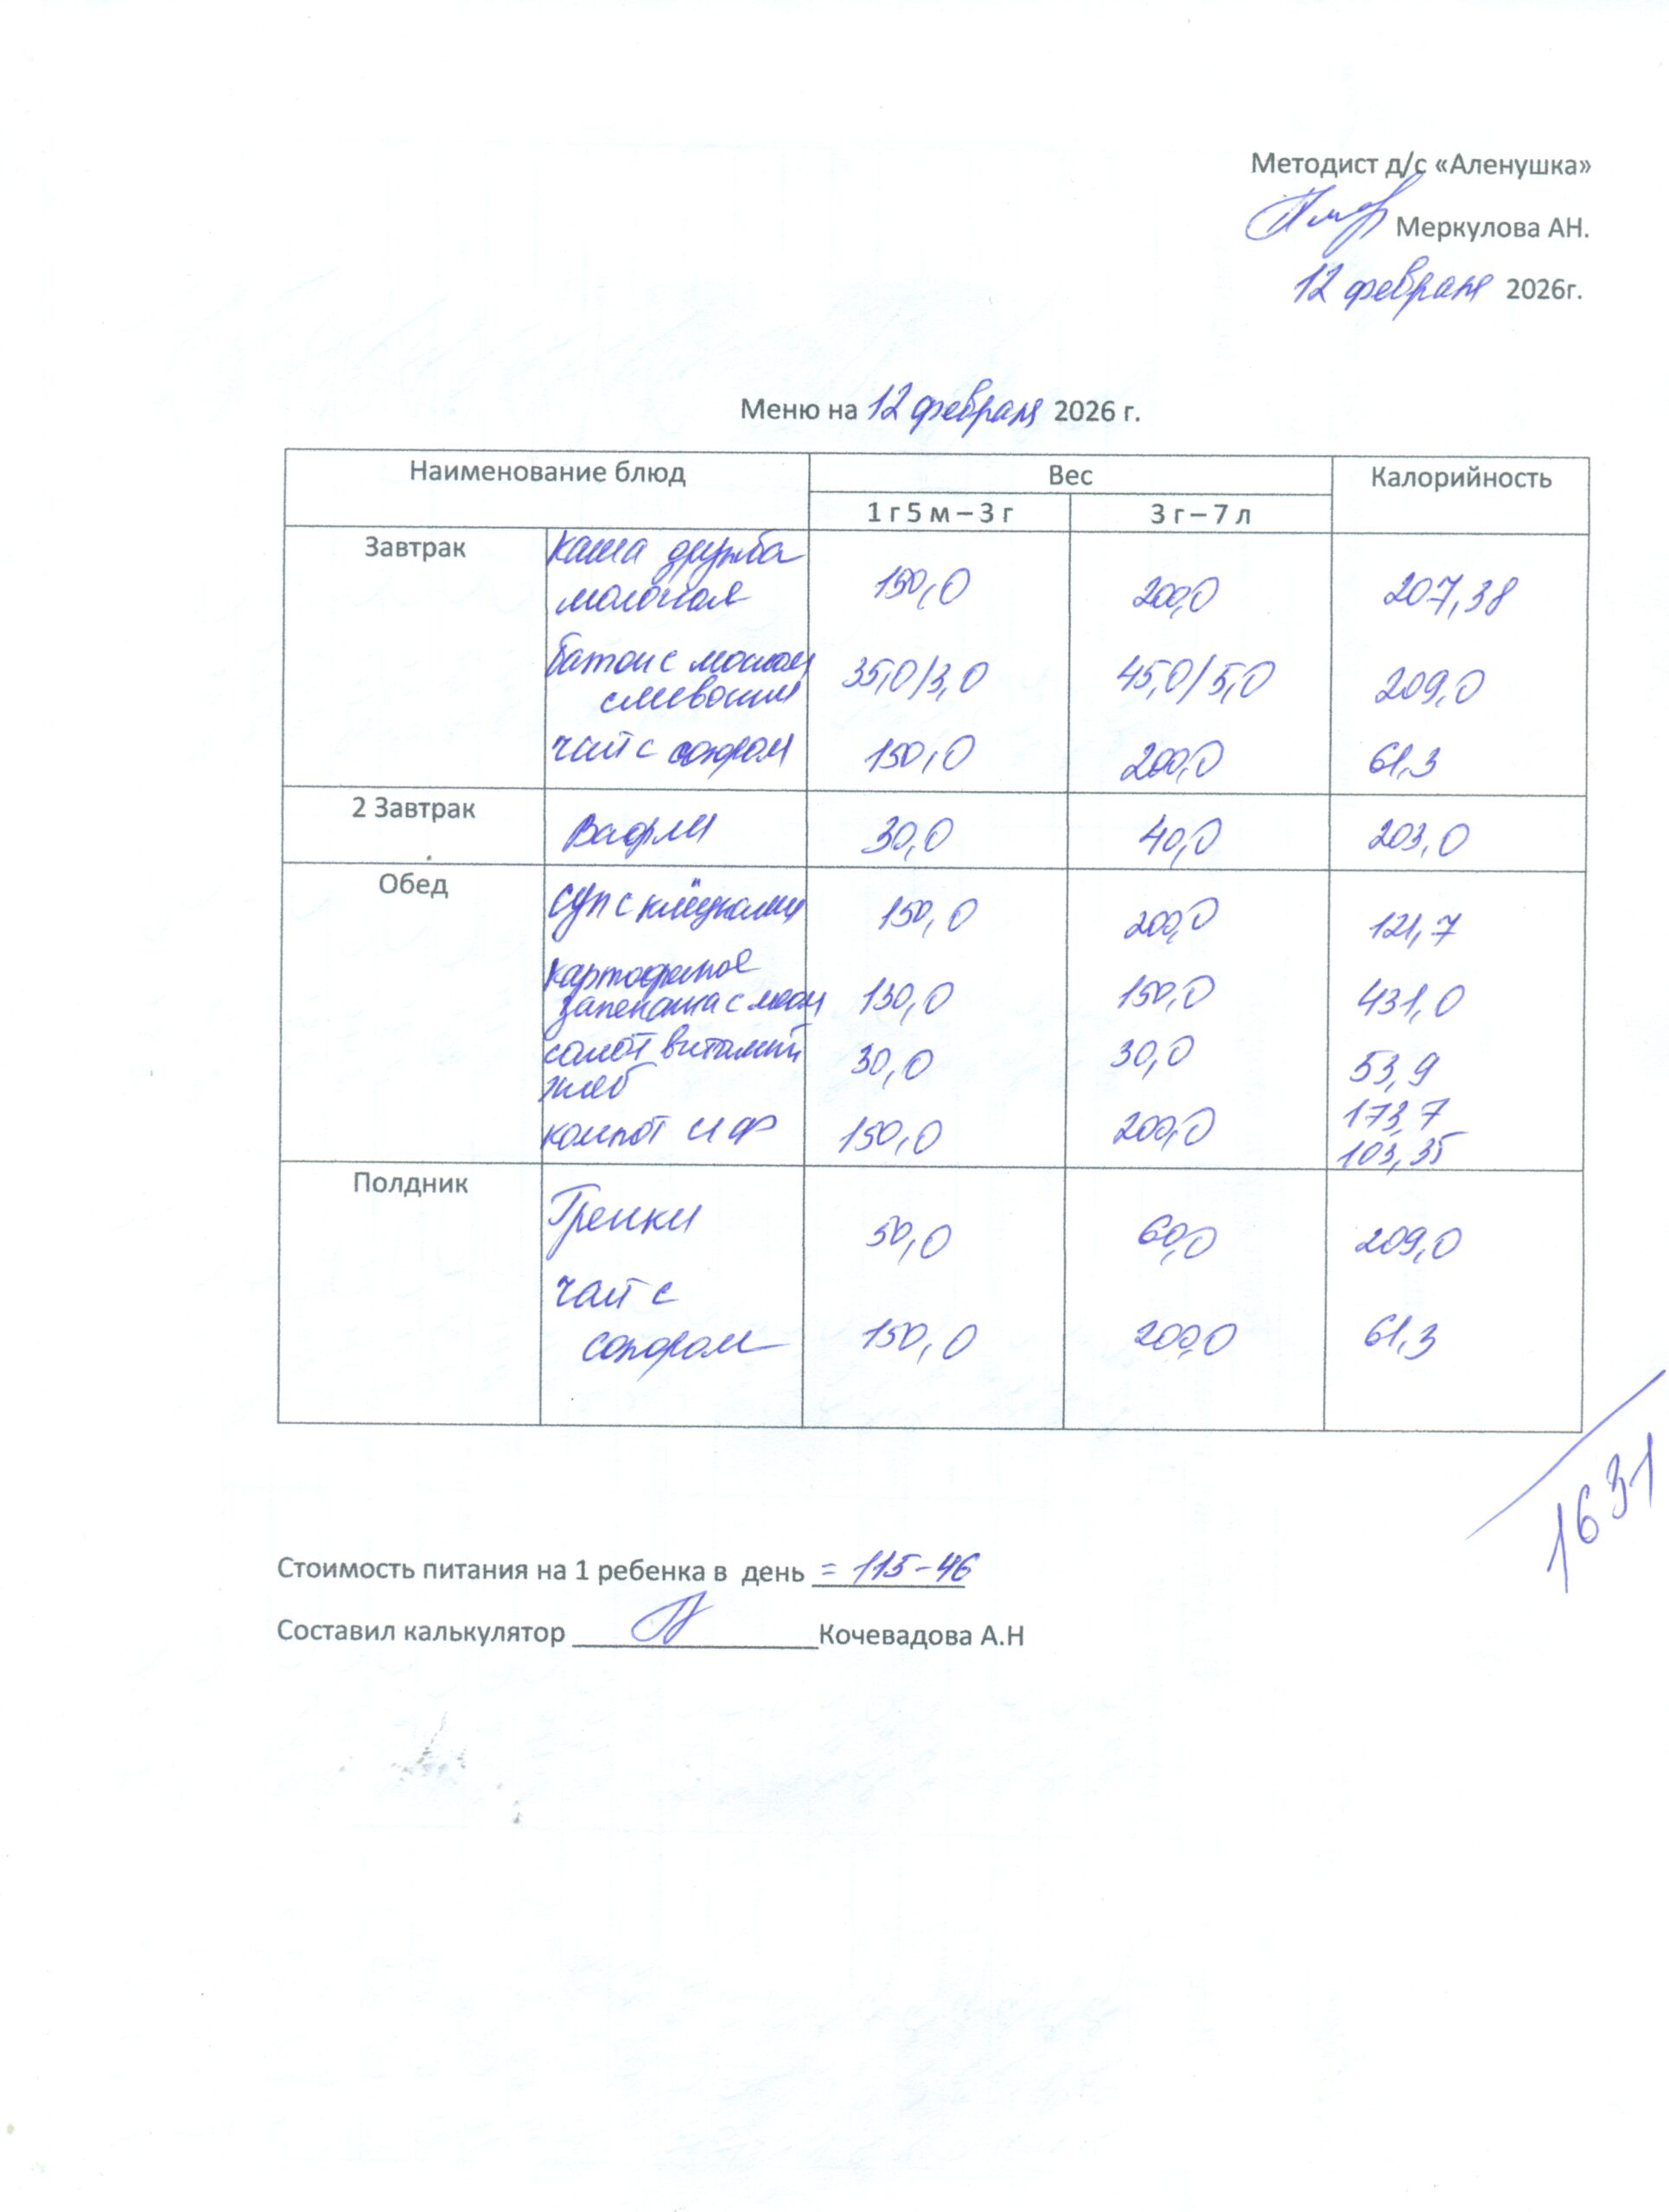 Методист д/с «Аленушка»
Меркулова АН.
12 февраля 2026г.
Меню на 12 февраля 2026 г.
Наименование блюд Вес Калорийность
1 г 5 м – 3 г 3 г – 7 л
Завтрак каша дружба
молочная 150,0 200,0 207,38
батон с маслом
сливочным 35,0/3,0 45,0/5,0 209,0
чай с сахаром 150,0 200,0 61,3
2 Завтрак Вафли 30,0 40,0 203,0
Обед суп с клёцками 150,0 200,0 121,7
картофельное
запеканка с мясом 130,0 150,0 431,0
салат витамин 30,0 30,0 53,9
хлеб 173,7
компот и ф 150,0 200,0 103,35
Полдник Гренки 50,0 60,0 209,0
чай с
сахаром 150,0 200,0 61,3
1631
Стоимость питания на 1 ребенка в день = 115-46
Составил калькулятор Кочевадова А.Н